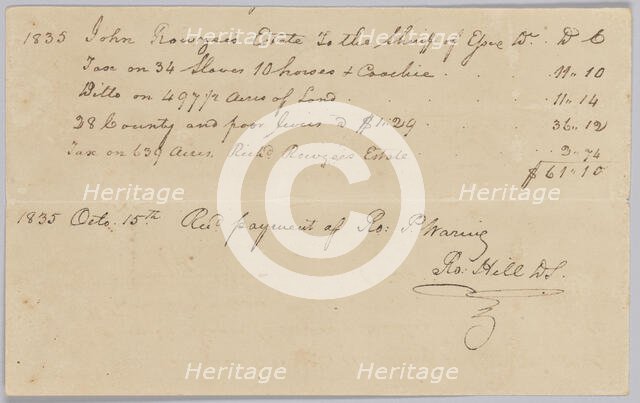 1835 John Rowzees Estate To the Sheriff of Essex Dr. D C
Tax on 34 Slaves 10 horses & Coachee . . 11" 10
Ditto on 497 1/2 Acres of Land . . . 11" 14
28 County and poor levies @ $1" 29 . . 36" 12
Tax on 639 Acres Richd Rowzees Estate 2" 74
$61" 10
1835 Octo. 15th Recd payment of Ro: P. Waring
Ro: Hill DS.
Heritage Heritage Heritage
Heritage Heritage Heritage
Heritage Heritage